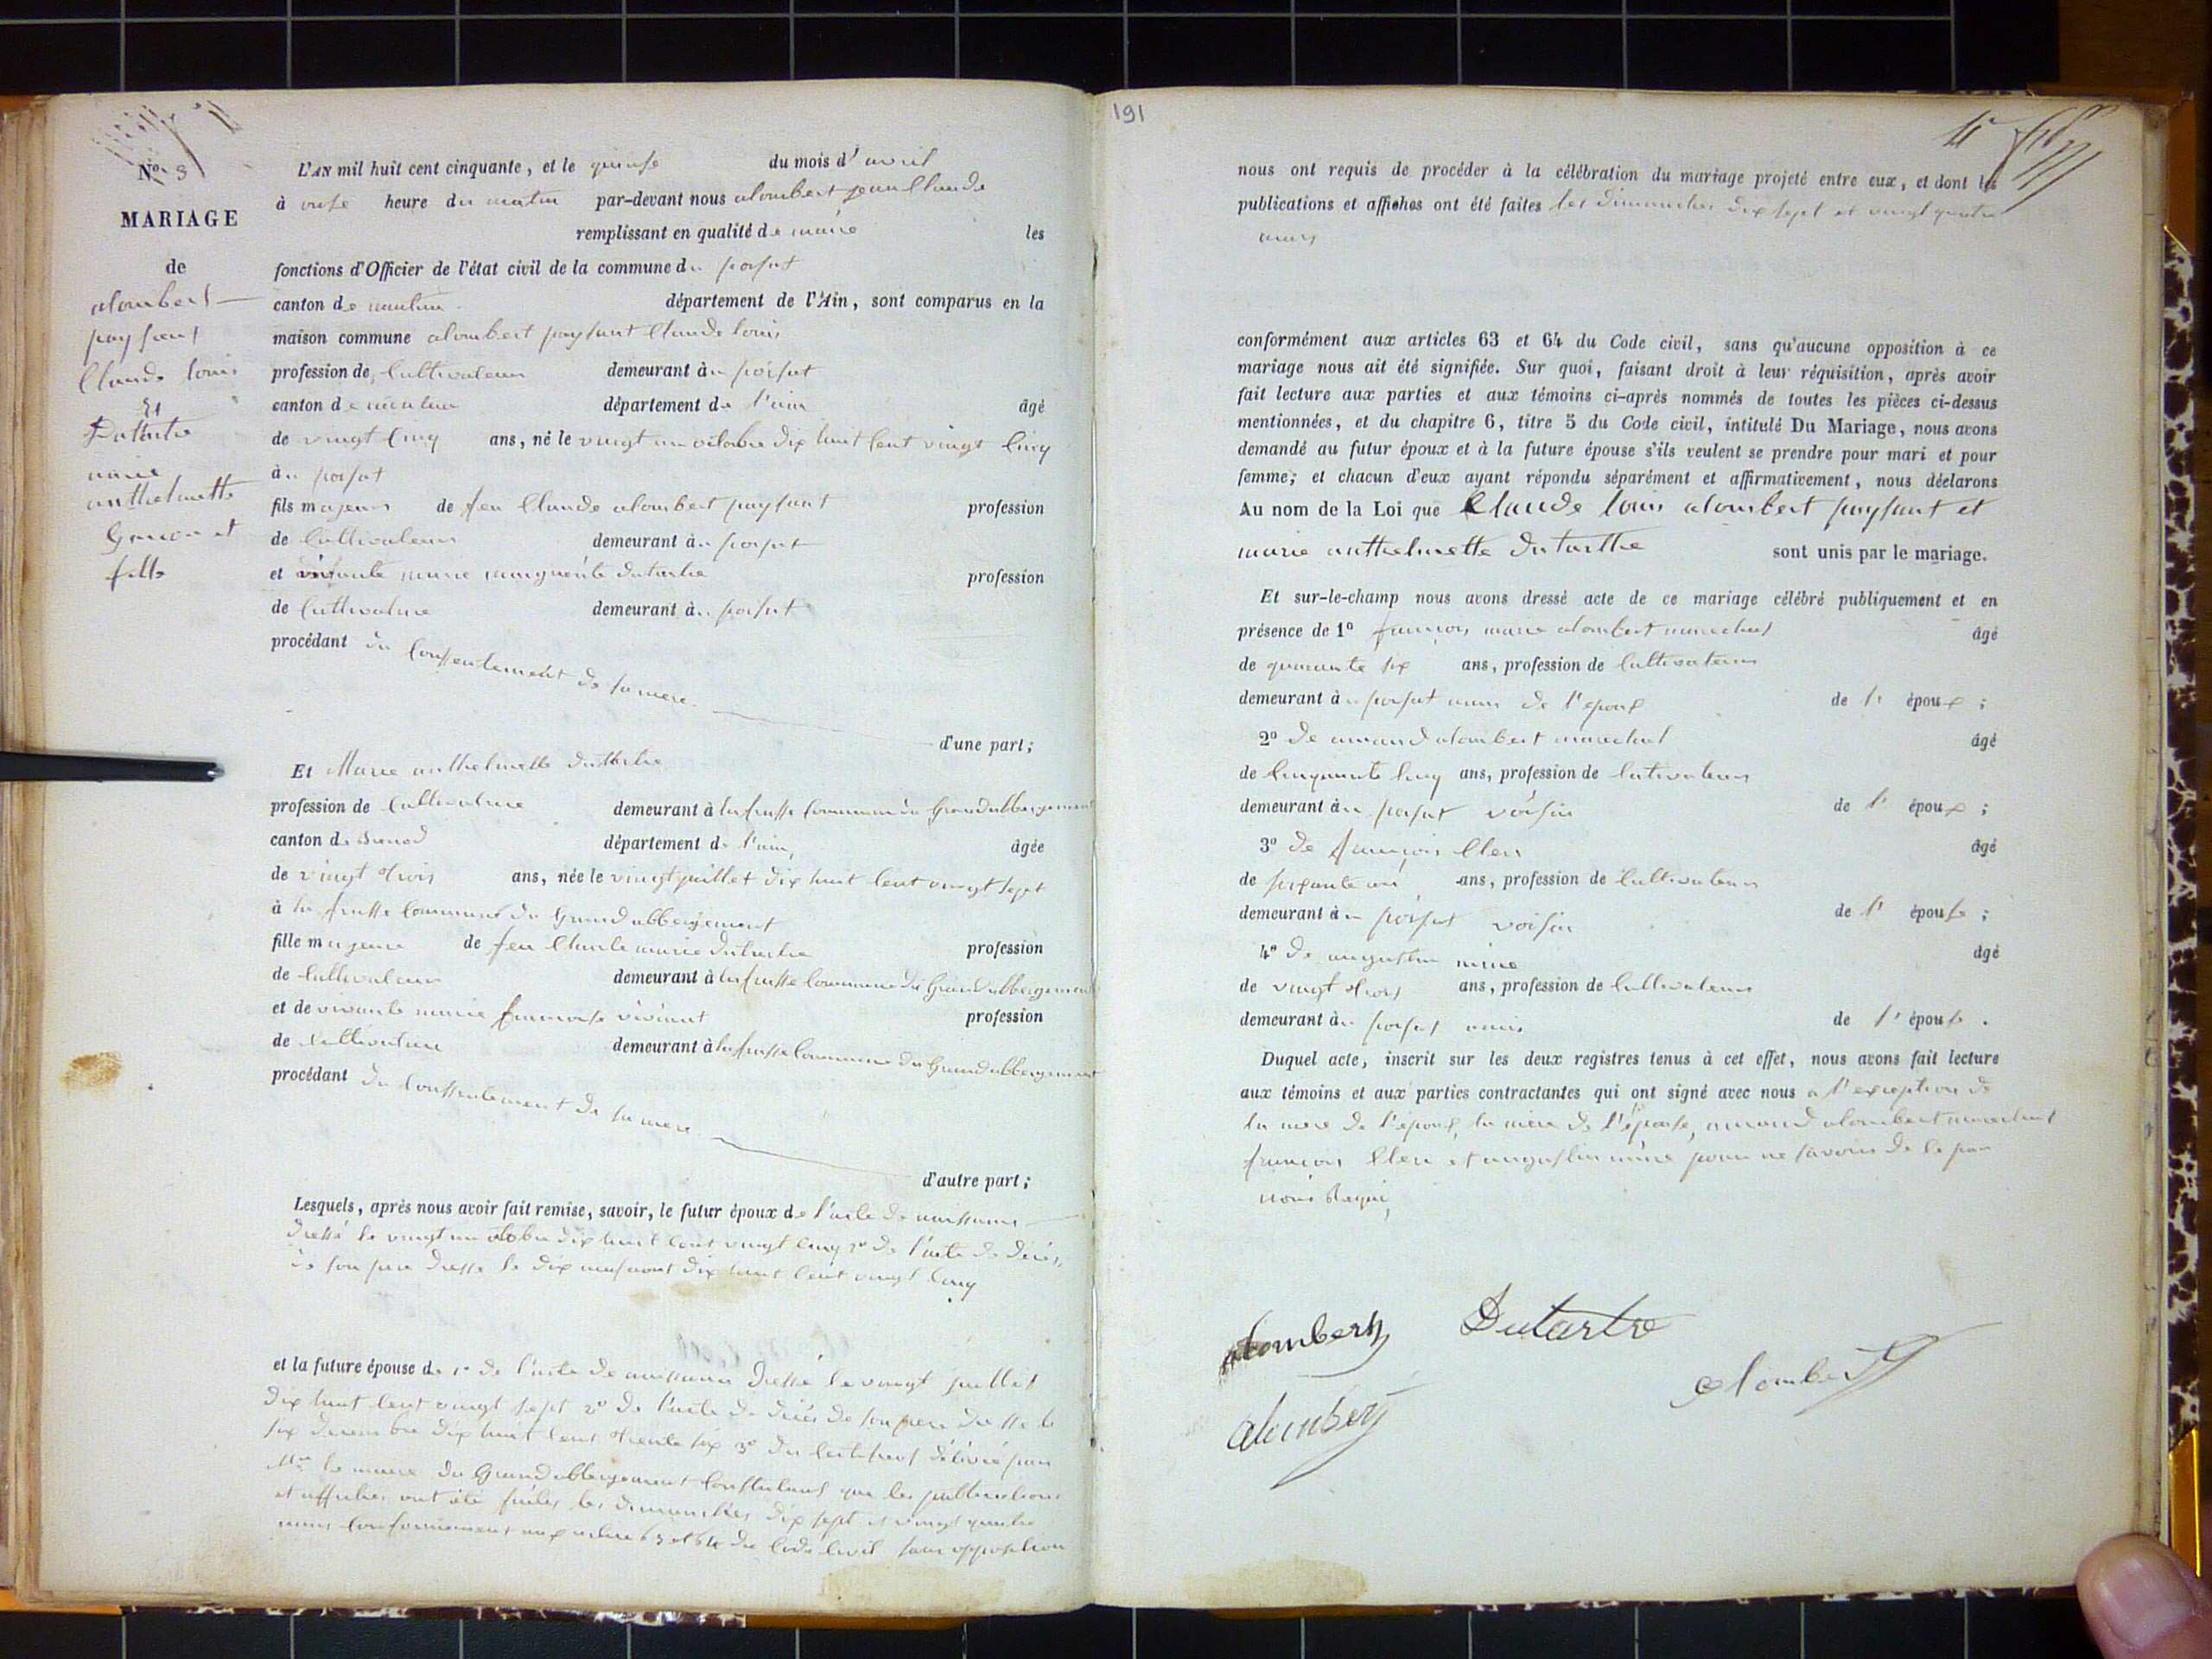 No. 3
MARIAGE
de
alombert
paysant
Claude louis
Et
Dutartre
marie
anthelmette
Garcon et
fille
L'AN mil huit cent cinquante, et le quinse du mois d' avril
à onse heure du matin par-devant nous alombert jean Claude
remplissant en qualité de maire les
fonctions d'Officier de l'état civil de la commune du poisat
canton de nantua département de l'Ain, sont comparus en la
maison commune alombert paysant Claude louis
profession de Cultivateur demeurant àu poisat
canton de nantua département de l'ain âgé
de vingt Cinq ans, né le vingt un octobre dix huit Cent vingt Cinq
àu poisat
fils majeur de feu Claude alombert paysant profession
de Cultivateur demeurant àu poisat
et vivante marie marguerite dutartre profession
de Cultivatrice demeurant àu poisat
procédant du Consentement de sa mere
d'une part;
Et Marie anthelmette duttartre
profession de Cultivatrice demeurant à la frasse Commune du Grandabbergement
canton de Brenod département de l'ain, âgée
de vingt trois ans, née le vingt juillet dix huit Cent vingt sept
à la frasse Commune du Grand abbergement
fille majeure de feu Claude marie dutartre profession
de Cultivateur demeurant à la frasse Commune du Grand abbergement
et de vivante marie francoise vivians profession
de Cultivatrice demeurant à la frasse Commune du Grand abbergement
procédant du Conssentement de sa mere
d'autre part;
Lesquels, après nous avoir fait remise, savoir, le futur époux de l'acte de naissance
dressé le vingt un octobre dix huit Cent vingt Cinq 2º de l'acte de décès
de son pere dresse le dix neuf aout dix huit Cent vingt Cinq
et la future épouse de 1º de l'acte de naissance dressé le vingt juillet
dix huit Cent vingt sept 2º de l'acte de décès de son pere dresse le
six decembre dix huit Cent trente six 3º du Certificat délivré par
Mr le maire du Grand abbergement Consttatant que les publications
et affiches ont été faites les dimanches dix sept et vingt quatre
mars Conformément aux articles 63 et 64 du Code Civil sans opposition
191
nous ont requis de procéder à la célébration du mariage projeté entre eux, et dont les
publications et affiches ont été faites les dimanches dix sept et vingt quatre
mars
conformément aux articles 63 et 64 du Code civil, sans qu'aucune opposition à ce
mariage nous ait été signifiée. Sur quoi, faisant droit à leur réquisition, après avoir
fait lecture aux parties et aux témoins ci-après nommés de toutes les pièces ci-dessus
mentionnées, et du chapitre 6, titre 5 du Code civil, intitulé Du Mariage, nous avons
demandé au futur époux et à la future épouse s'ils veulent se prendre pour mari et pour
femme; et chacun d'eux ayant répondu séparément et affirmativement, nous déclarons
Au nom de la Loi que Claude louis alombert paysant et
marie anthelmette Dutartre sont unis par le mariage.
Et sur-le-champ nous avons dressé acte de ce mariage célébré publiquement et en
présence de 1º francois marie alombert marechal âgé
de quarante six ans, profession de Cultivateur
demeurant àu poisat de l'epoux de l' époux;
2º De armand alombert marechal âgé
de Cinquante Cinq ans, profession de Cultivateur
demeurant àu poisat voisin de l' époux;
3º De francois Clerc âgé
de soixante ans, profession de Cultivateur
demeurant àu poisat voisin de l' épouse;
4º De augustin âgé
de vingt trois ans, profession de Cultivateur
demeurant àu poisat amis de l' épouse.
Duquel acte, inscrit sur les deux registres tenus à cet effet, nous avons fait lecture
aux témoins et aux parties contractantes qui ont signé avec nous a l'exception de
la mere de l'epoux, la mere de l'épouse, armand alombert marechal
francois Clerc et augustin pour ne savoir de ce par
nous Requi,
alombert Dutartre
alombert
alombert